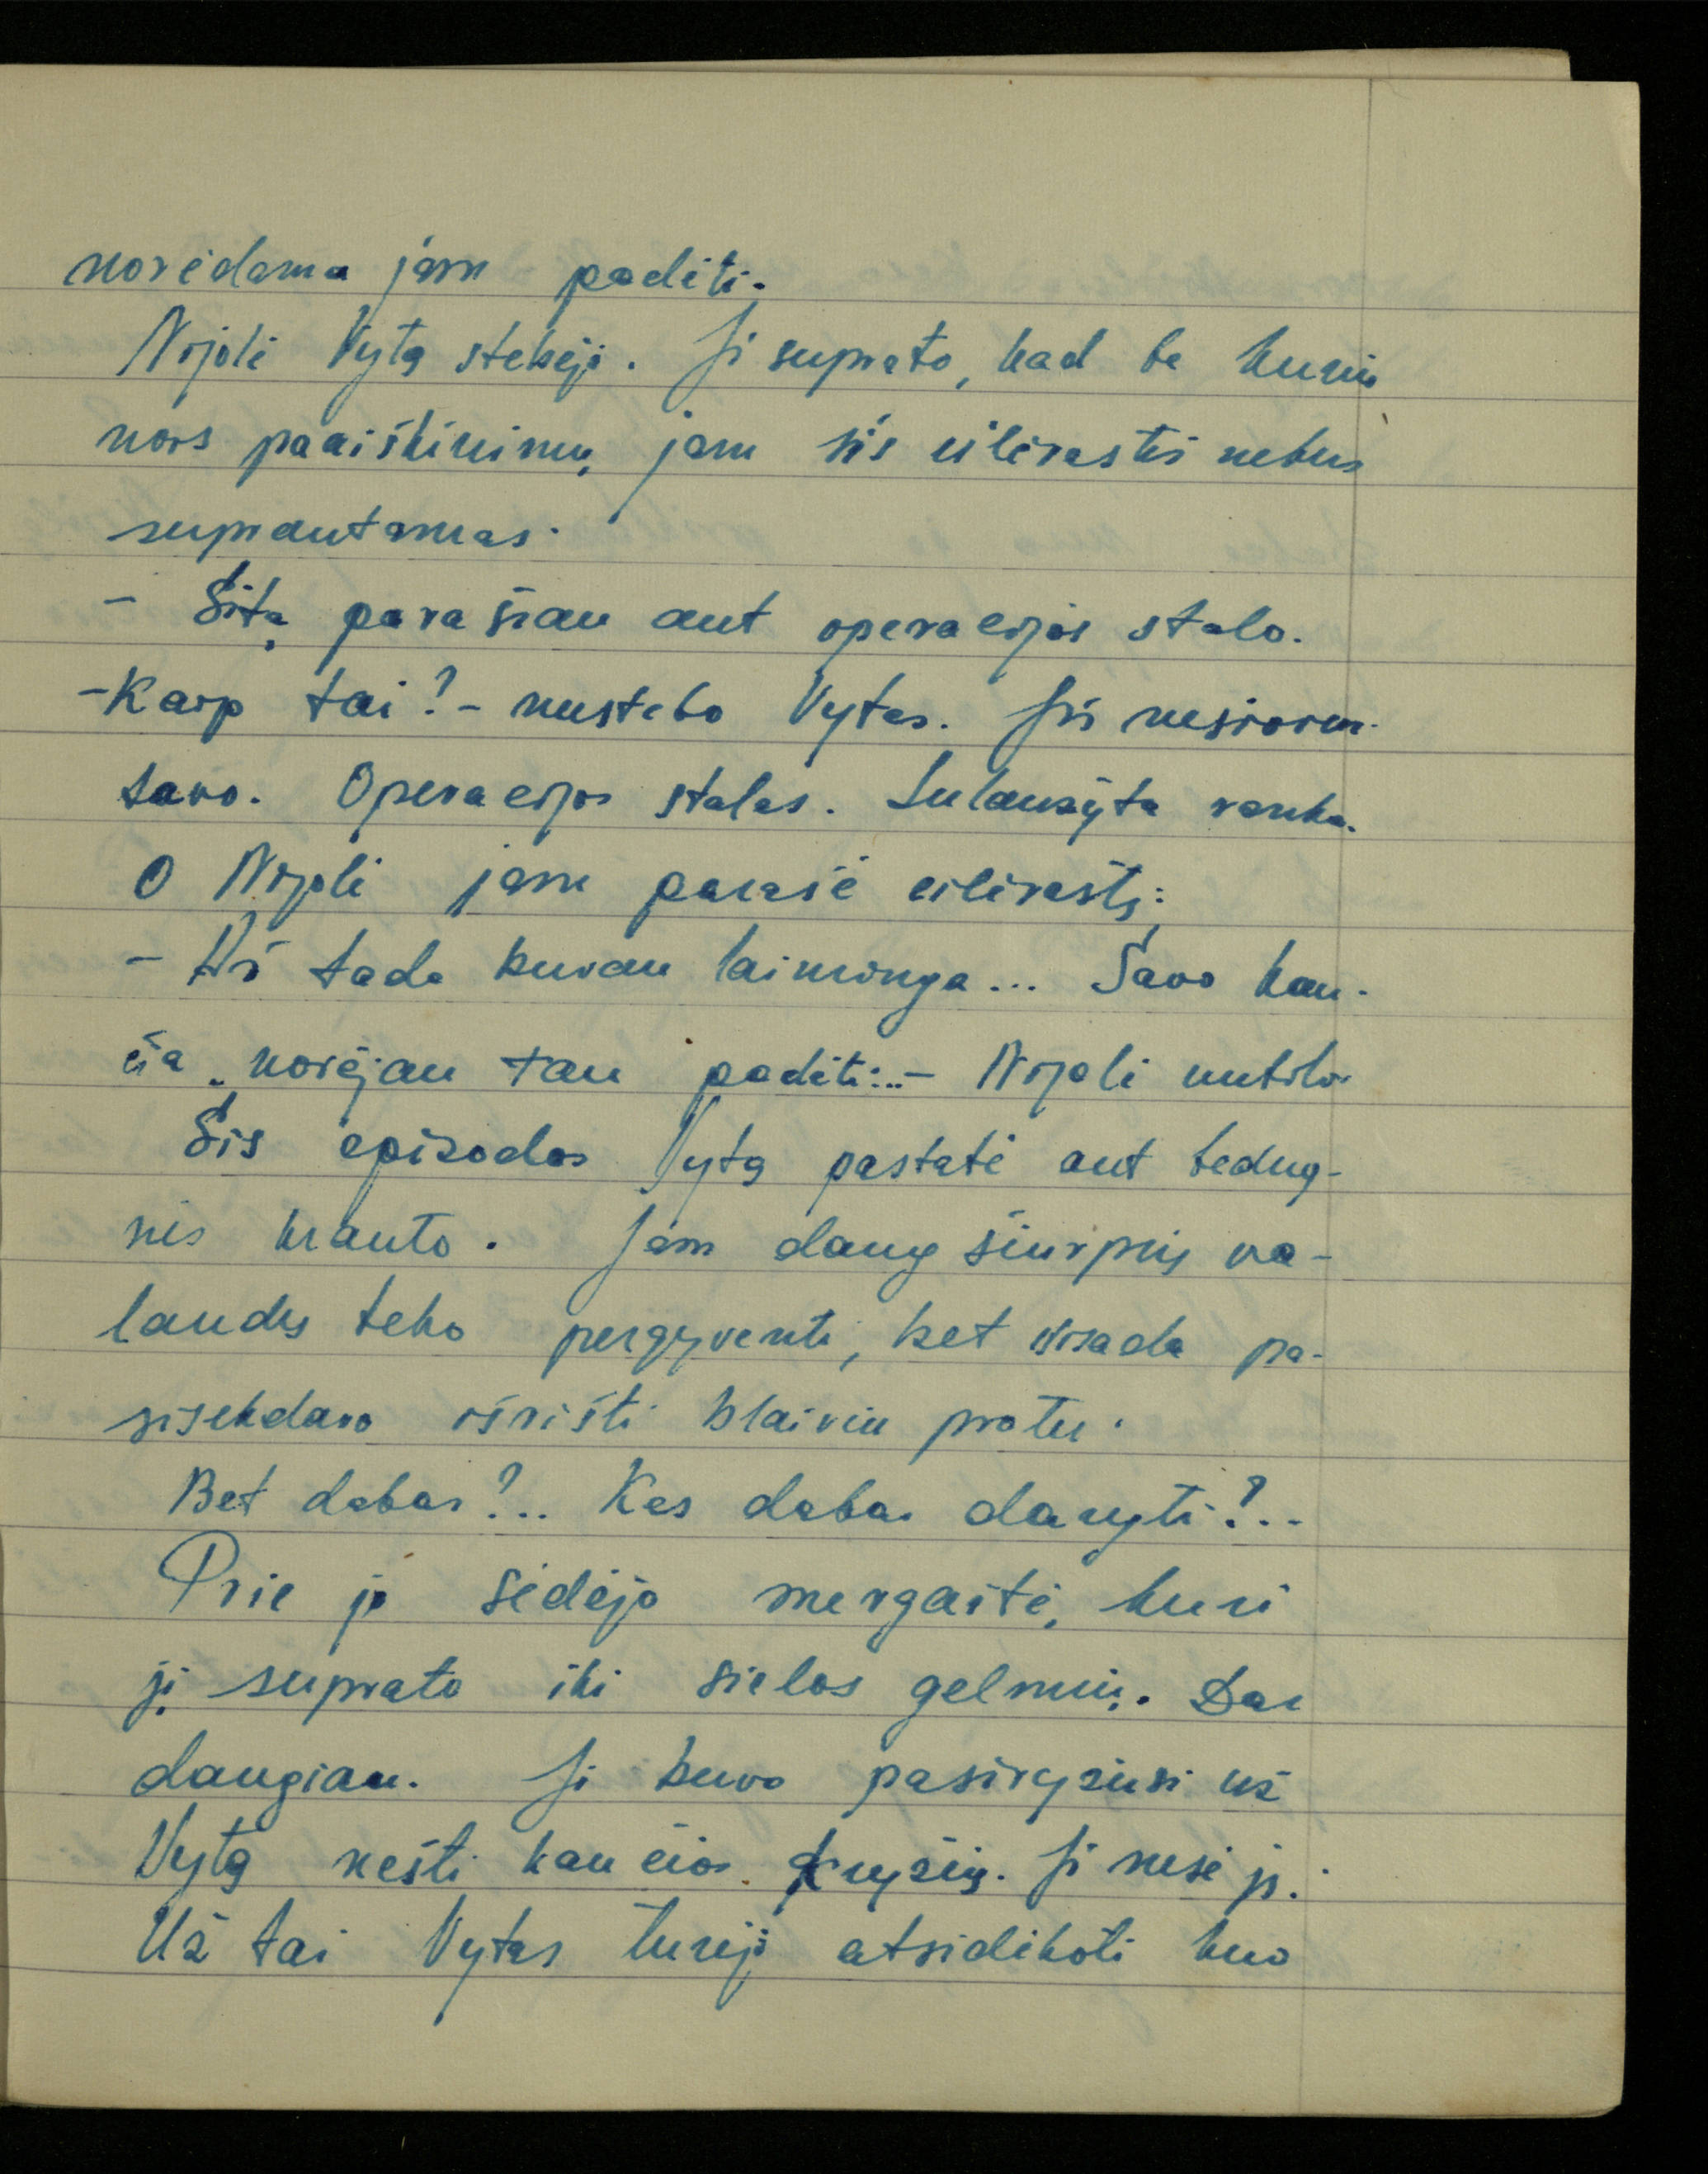 norėdama jam padėti.
Nijolė Vytą stebėjo. Ji suprato, kad be kurių
nors paaiškinimų jam šis eilėraštis nebus
suprantamas.
- Šitą parašiau ant operacijos stalo.
- Kaip tai? - nustebo Vytas. Jis nesiorien-
tavo. Operacijos stalas. Sulaužyta ranka.
O Nijolė jam parašė eilėraštį.
- Aš tada buvau laiminga... Savo kan-
čia norėjau tau padėti... - Nijolė nutilo
Šis epizodas Vytą pastatė ant bedug-
nės kranto. Jam daug šiurpių va-
landų teko pergyventi, bet visada pa-
sisekdavo išrišti blaiviu protu.
Bet dabar?.. Kas dabar daryti?..
Prie jo sėdėjo mergaitė, kuri
jį suprato iki sielos gelmių. Dar
daugiau. Ji buvo pasiryžusi už
Vytą nešti kančios kryžių. Ji nešė jį.
Už tai Vytas turėjo atsidėkoti kuo